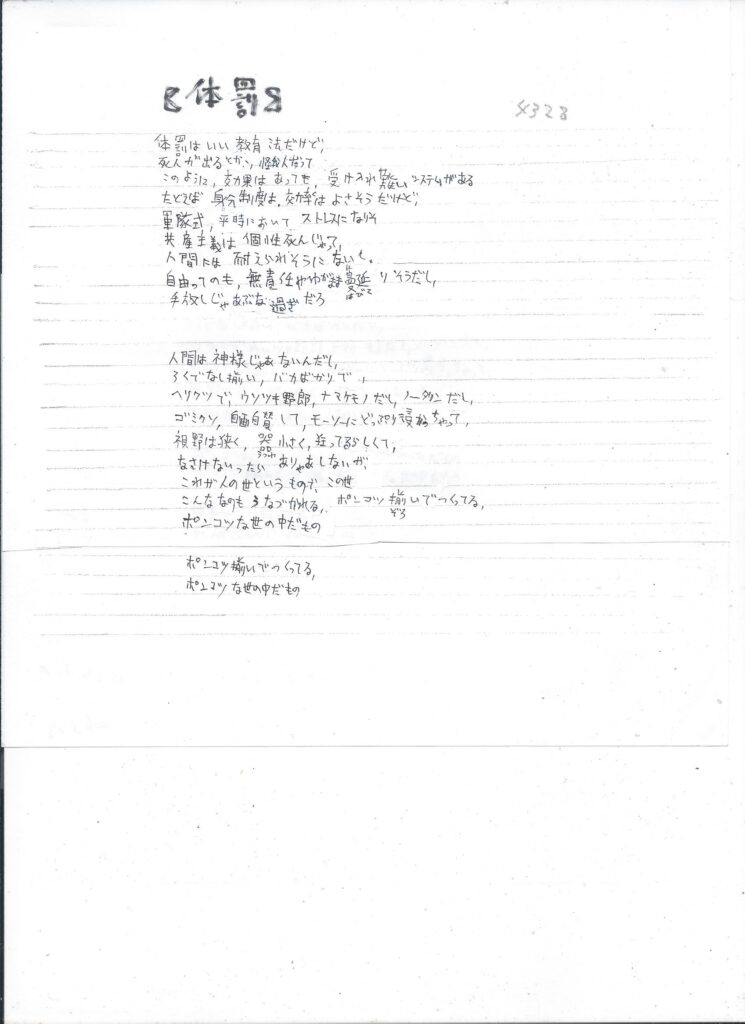 【体罰】
4328
体罰はいい教育法だけど、
死人が出るとか、怪我人だって
このように、効果はあっても、受け入れ難いシステムがある
たとえば 身分制度は、効率はよさそうだけど、
軍隊式、平時において ストレスになりそ
共産主義は 個性死んじゃって、
人間には 耐えられそうにないし。
自由ってのも、無責任やわがまま蔓延りそうだし、
はびこ
手放しじゃあぶな過ぎだろ
人間は神様じゃあないんだし、
ろくでなし揃い、バカばかりで、
ヘリクツで、ウソツキ野郎、ナマケモノだし、ノータリンだし、
ゴミクソ、自画自賛して、モーソーにどっぷり浸かっちゃって、
視野は狭く、器 小さく、
うつわ
なさけないったら ありゃあしないが、
これが人の世というもので、この世
こんななのも うなづかれる、 ポンコツ揃いでつくってる、
ぞろ
ポンコツな世の中だもの
ポンコツ揃いでつくってる、
ポンコツな世の中だもの